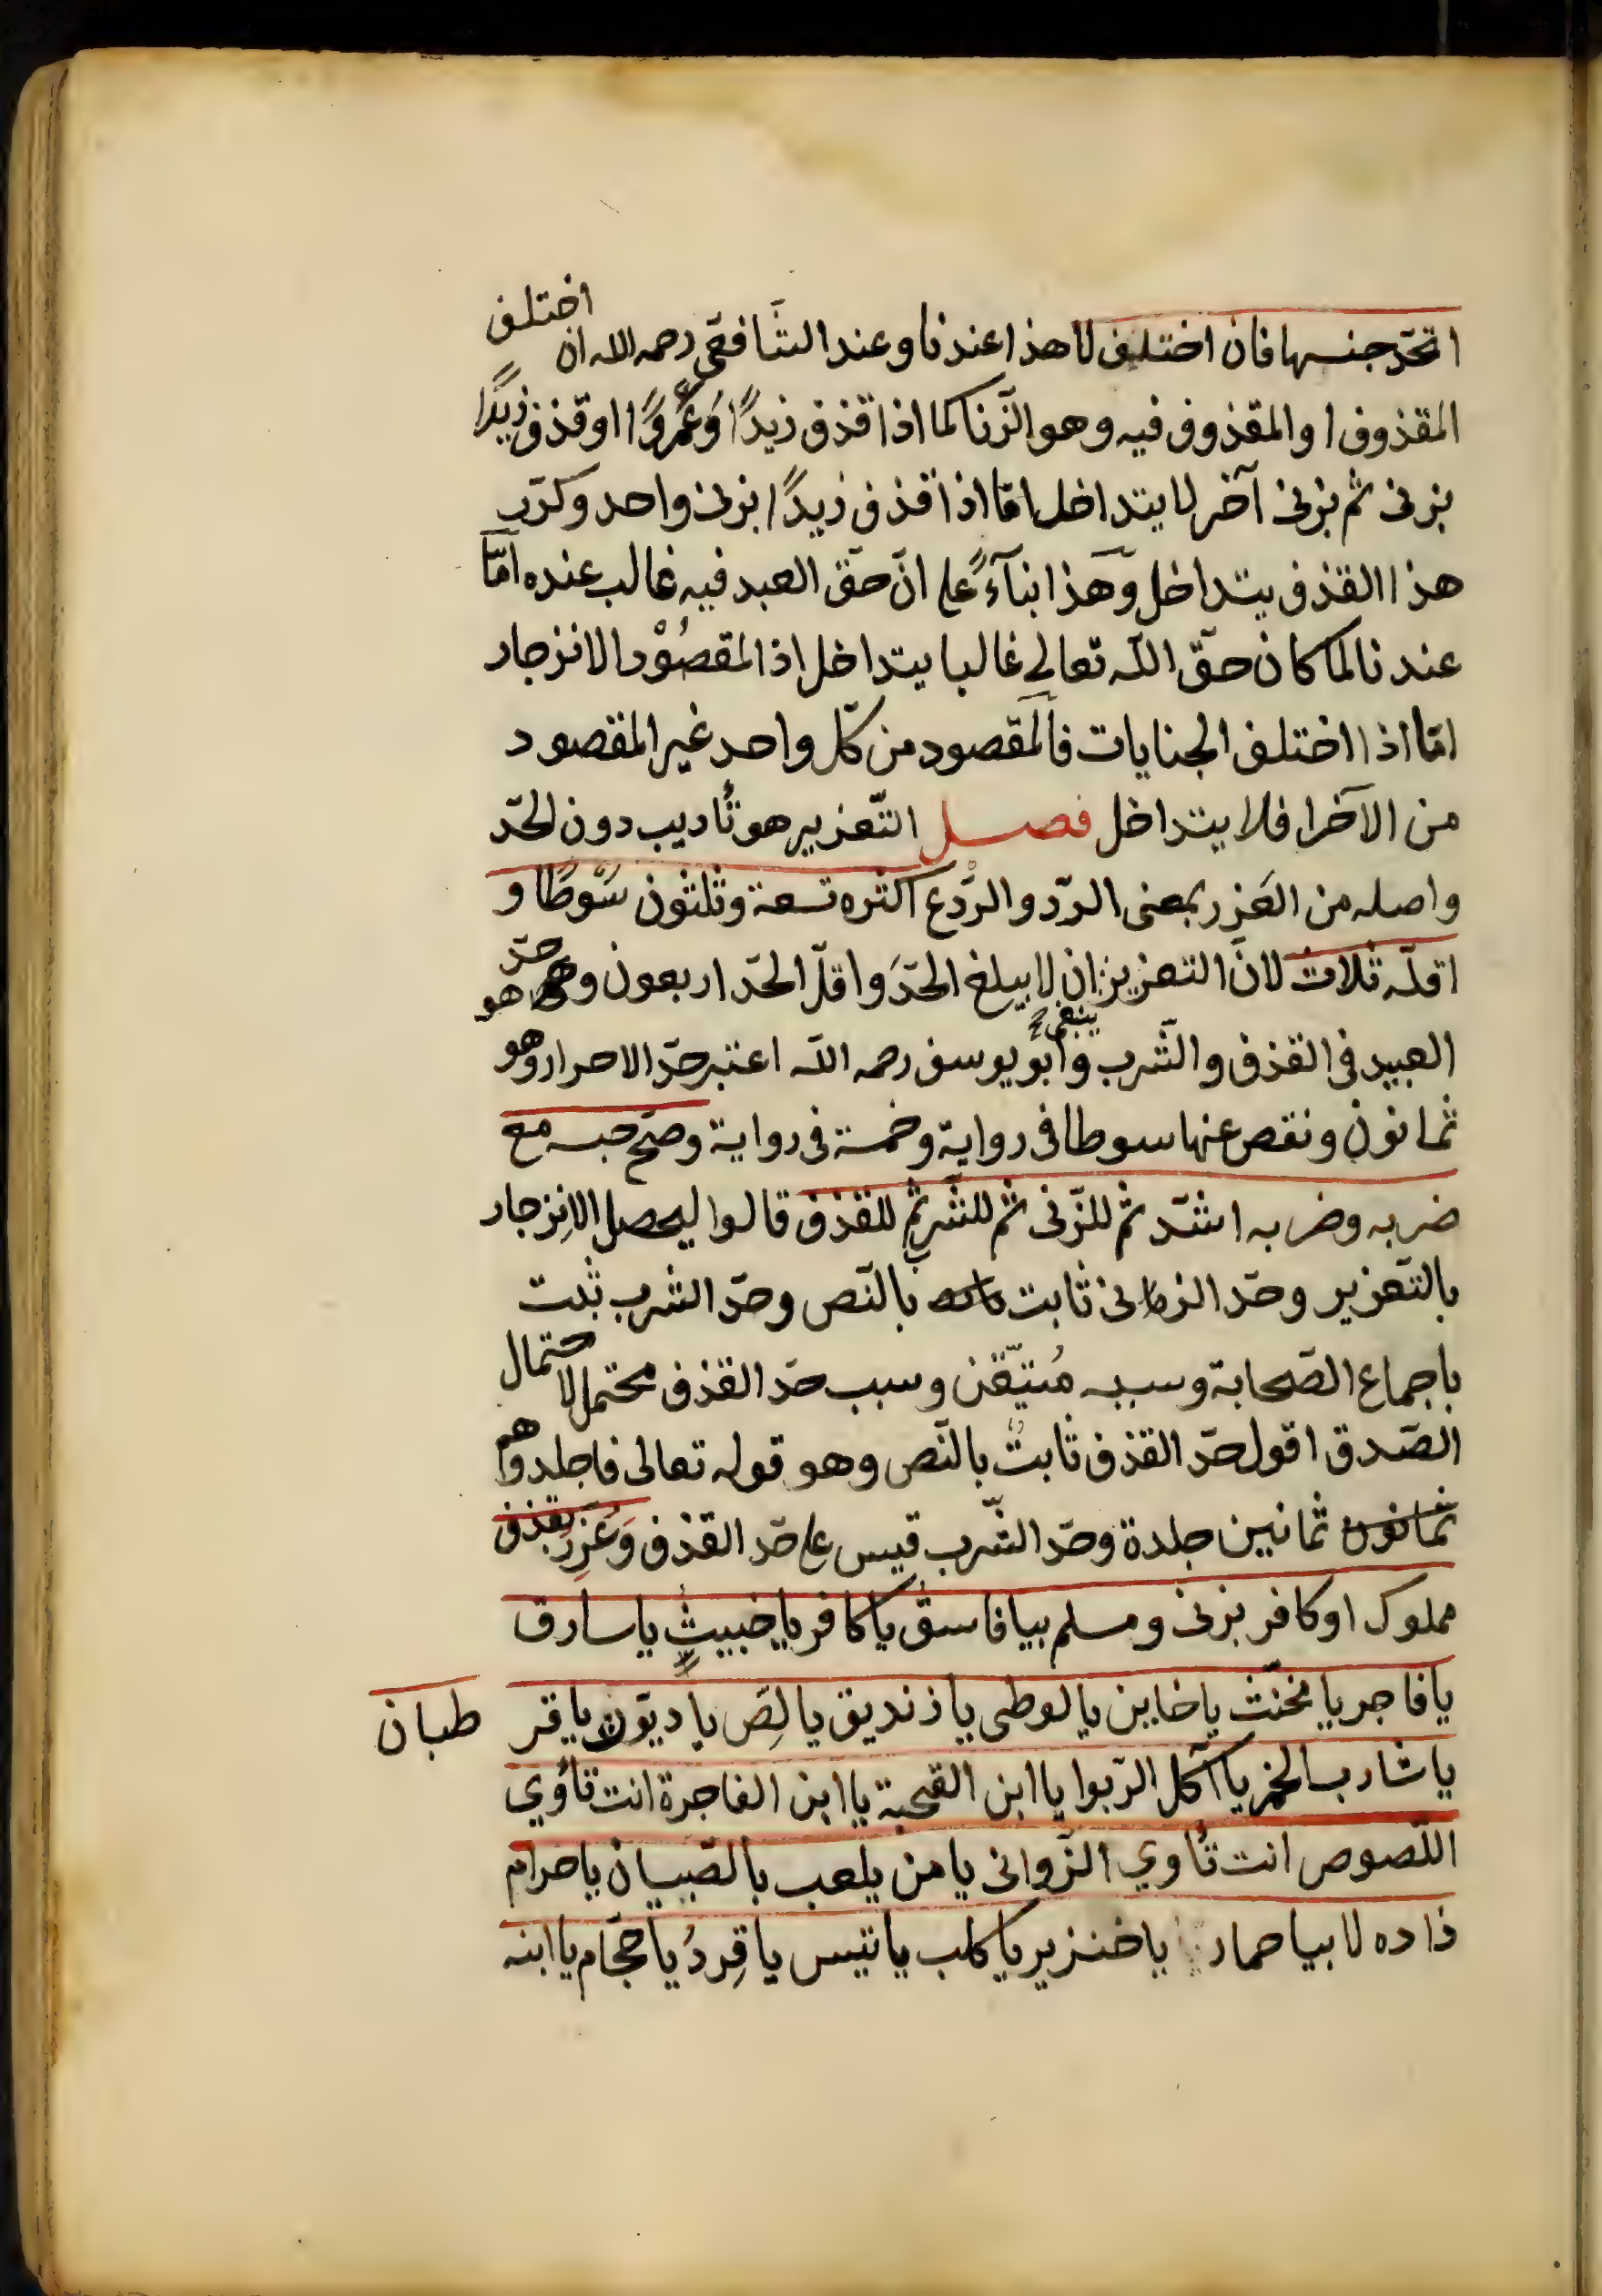 اتحد جنسها فان اختلف لا هذا عندنا وعند الشافعي رحمه الله ان اختلف
المقذوف او المقذوف فيه وهو الزنا كما اذا قذف زيدًا وَعَمْروًا او قذف زيدًا
بزنى ثم بزنى آخر لا يتداخل امّا اذا قذف زيدًا بزنى واحد وكرّر
هذا القذف يتداخل وهذا بناءً على انّ حقّ العبد فيه غالب عنده امّا
عندنا لما كان حقّ الله تعالى غالبا يتداخل اذ المقصُوْد الانزجار
امّا اذا اختلف الجنايات فالمقصود من كلّ واحد غير المقصود
من الآخر فلا يتداخل فصل التّعزير هو تأديب دون الحدّ
واصله من العَزْر بمعنى الردّ والرّدْع اكثره تسعة وثلثون سَوْطًا و
اقلّه ثلاث لانّ التعزير ينبغي ان لا يبلغ الحدَّ واقلّ الحدّ اربعون وهو حدّ
العبيد في القذف والشّرب وابو يوسف رحمه الله اعتبر حدّ الاحرار وهو
ثمانون ونقص عنها سوطا في رواية وخمسة في رواية وصحّ حبسه مع
ضربه وضربه اشدّ ثم للزّنى ثم للشّرب ثم للقذف قالوا ليحصل الانزجار
بالتّعزير وحدّ الزنى ثابت بالنّص وحدّ الشرب ثبت
باجماع الصّحابة وسببه مُتيقّن وسبب حدّ القذف محتمل لاحتمال
الصّدق اقول حدّ القذف ثابت بالنّص وهو قوله تعالى فاجلدوهم
ثمانون ثمانين جلدة وحدّ الشّرب قيس على حدّ القذف وَعُزِرَ بقذف
مملوك او كافر بزنى ومسلم بيا فاسق يا كافر يا خبيث يا سارق
يا فاجر يا مخنّث يا خاين يا لوطى يا زنديق يا لِصّ يا ديّوث يا قر طبان
يا شارب الخمر يا آكل الرّبوا يا ابن القحبة يا ابن الفاجرة انت تأوي
اللّصوص انت تأوي الزّوانى يا من يلعب بالصّبيان يا حرام
زاده لا بيا حمار يا خنزير يا كلب يا تيس يا قِردُ يا حجّام يا ابنه